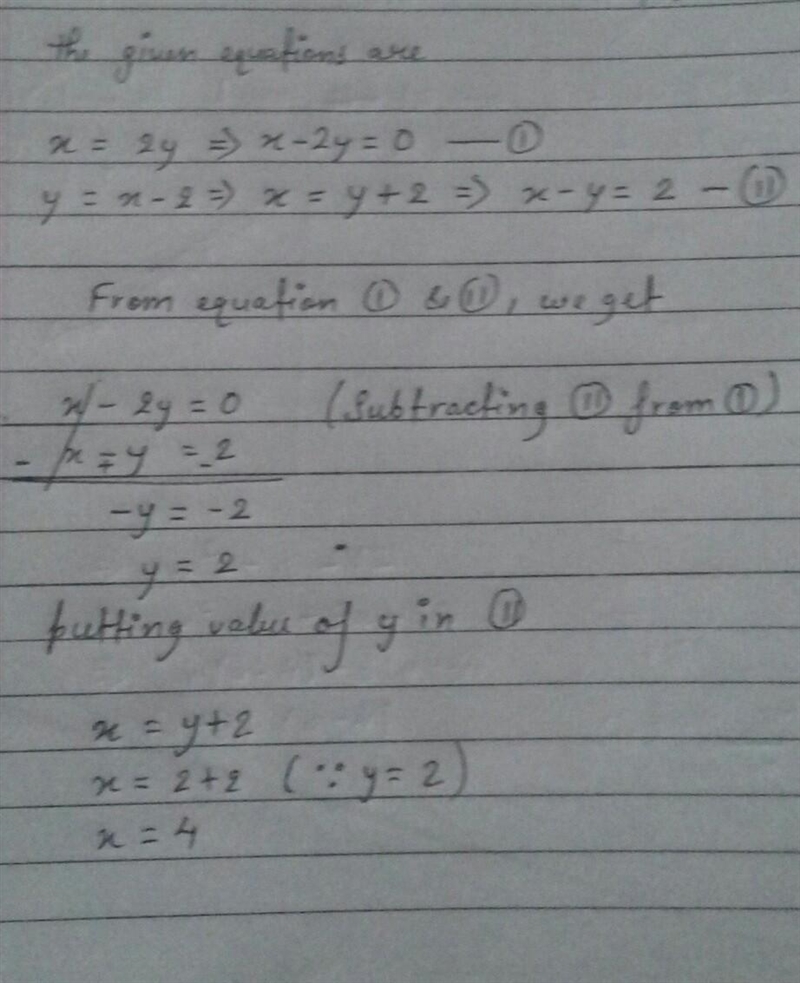 the given equations are
x = 2y ⇒ x - 2y = 0 — (I)
y = x - 2 ⇒ x = y + 2 ⇒ x - y = 2 — (II)
From equation (I) & (II), we get
x - 2y = 0 (Subtracting (II) from (I))
- x - y = 2
-y = -2
y = 2
putting value of y in (II)
x = y + 2
x = 2 + 2 (∵ y = 2)
x = 4